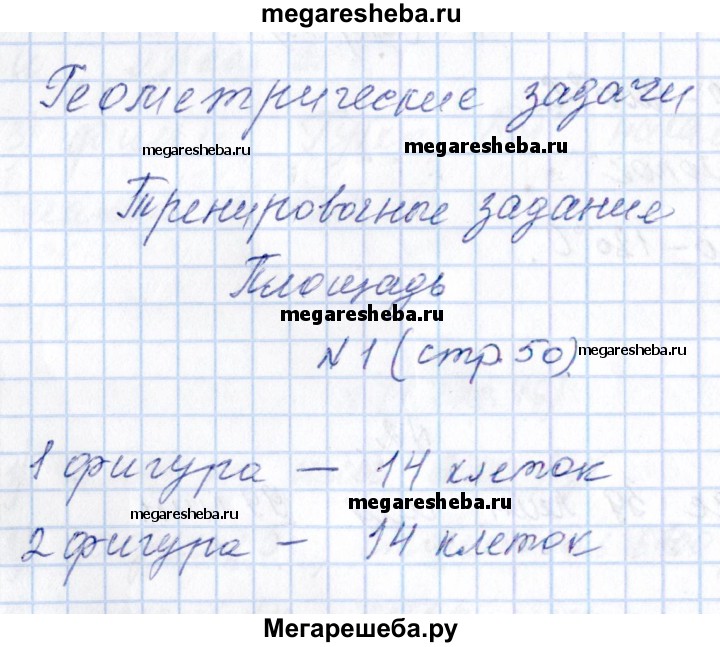 megaresheba.ru
Геометрические задачи
megaresheba.ru megaresheba.ru
Тренировочные задание
Площадь
megaresheba.ru
№1 (стр. 50) megaresheba.ru
1 фигура — 14 клеток
megaresheba.ru megaresheba.ru
2 фигура — 14 клеток
Мегарешеба.ру